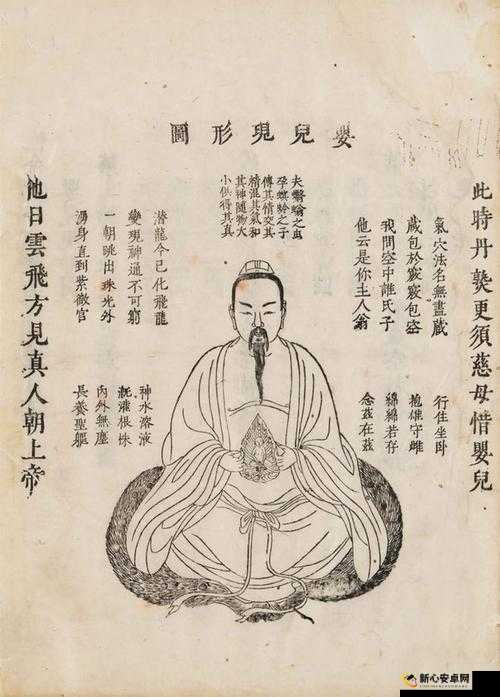 嬰兒現形圖
此時丹熟更須慈母惜嬰兒
氣穴法名無盡藏
藏包於竅竅包空
我問空中誰氏子
他云是你主人翁
行住坐臥
抱雄守雌
綿綿若存
念茲在茲
夫蠮螉之蟲
孕螟蛉之子
傳其情交其
精混其氣和
其神隨物大
小俱得其真
潛龍今已化飛龍
變現神通不可窮
一朝跳出珠光外
湧身直到紫微宮
神水溶液
溉灌根株
內外無塵
長養聖軀
他日雲飛方見真人朝上帝
新心安卓网